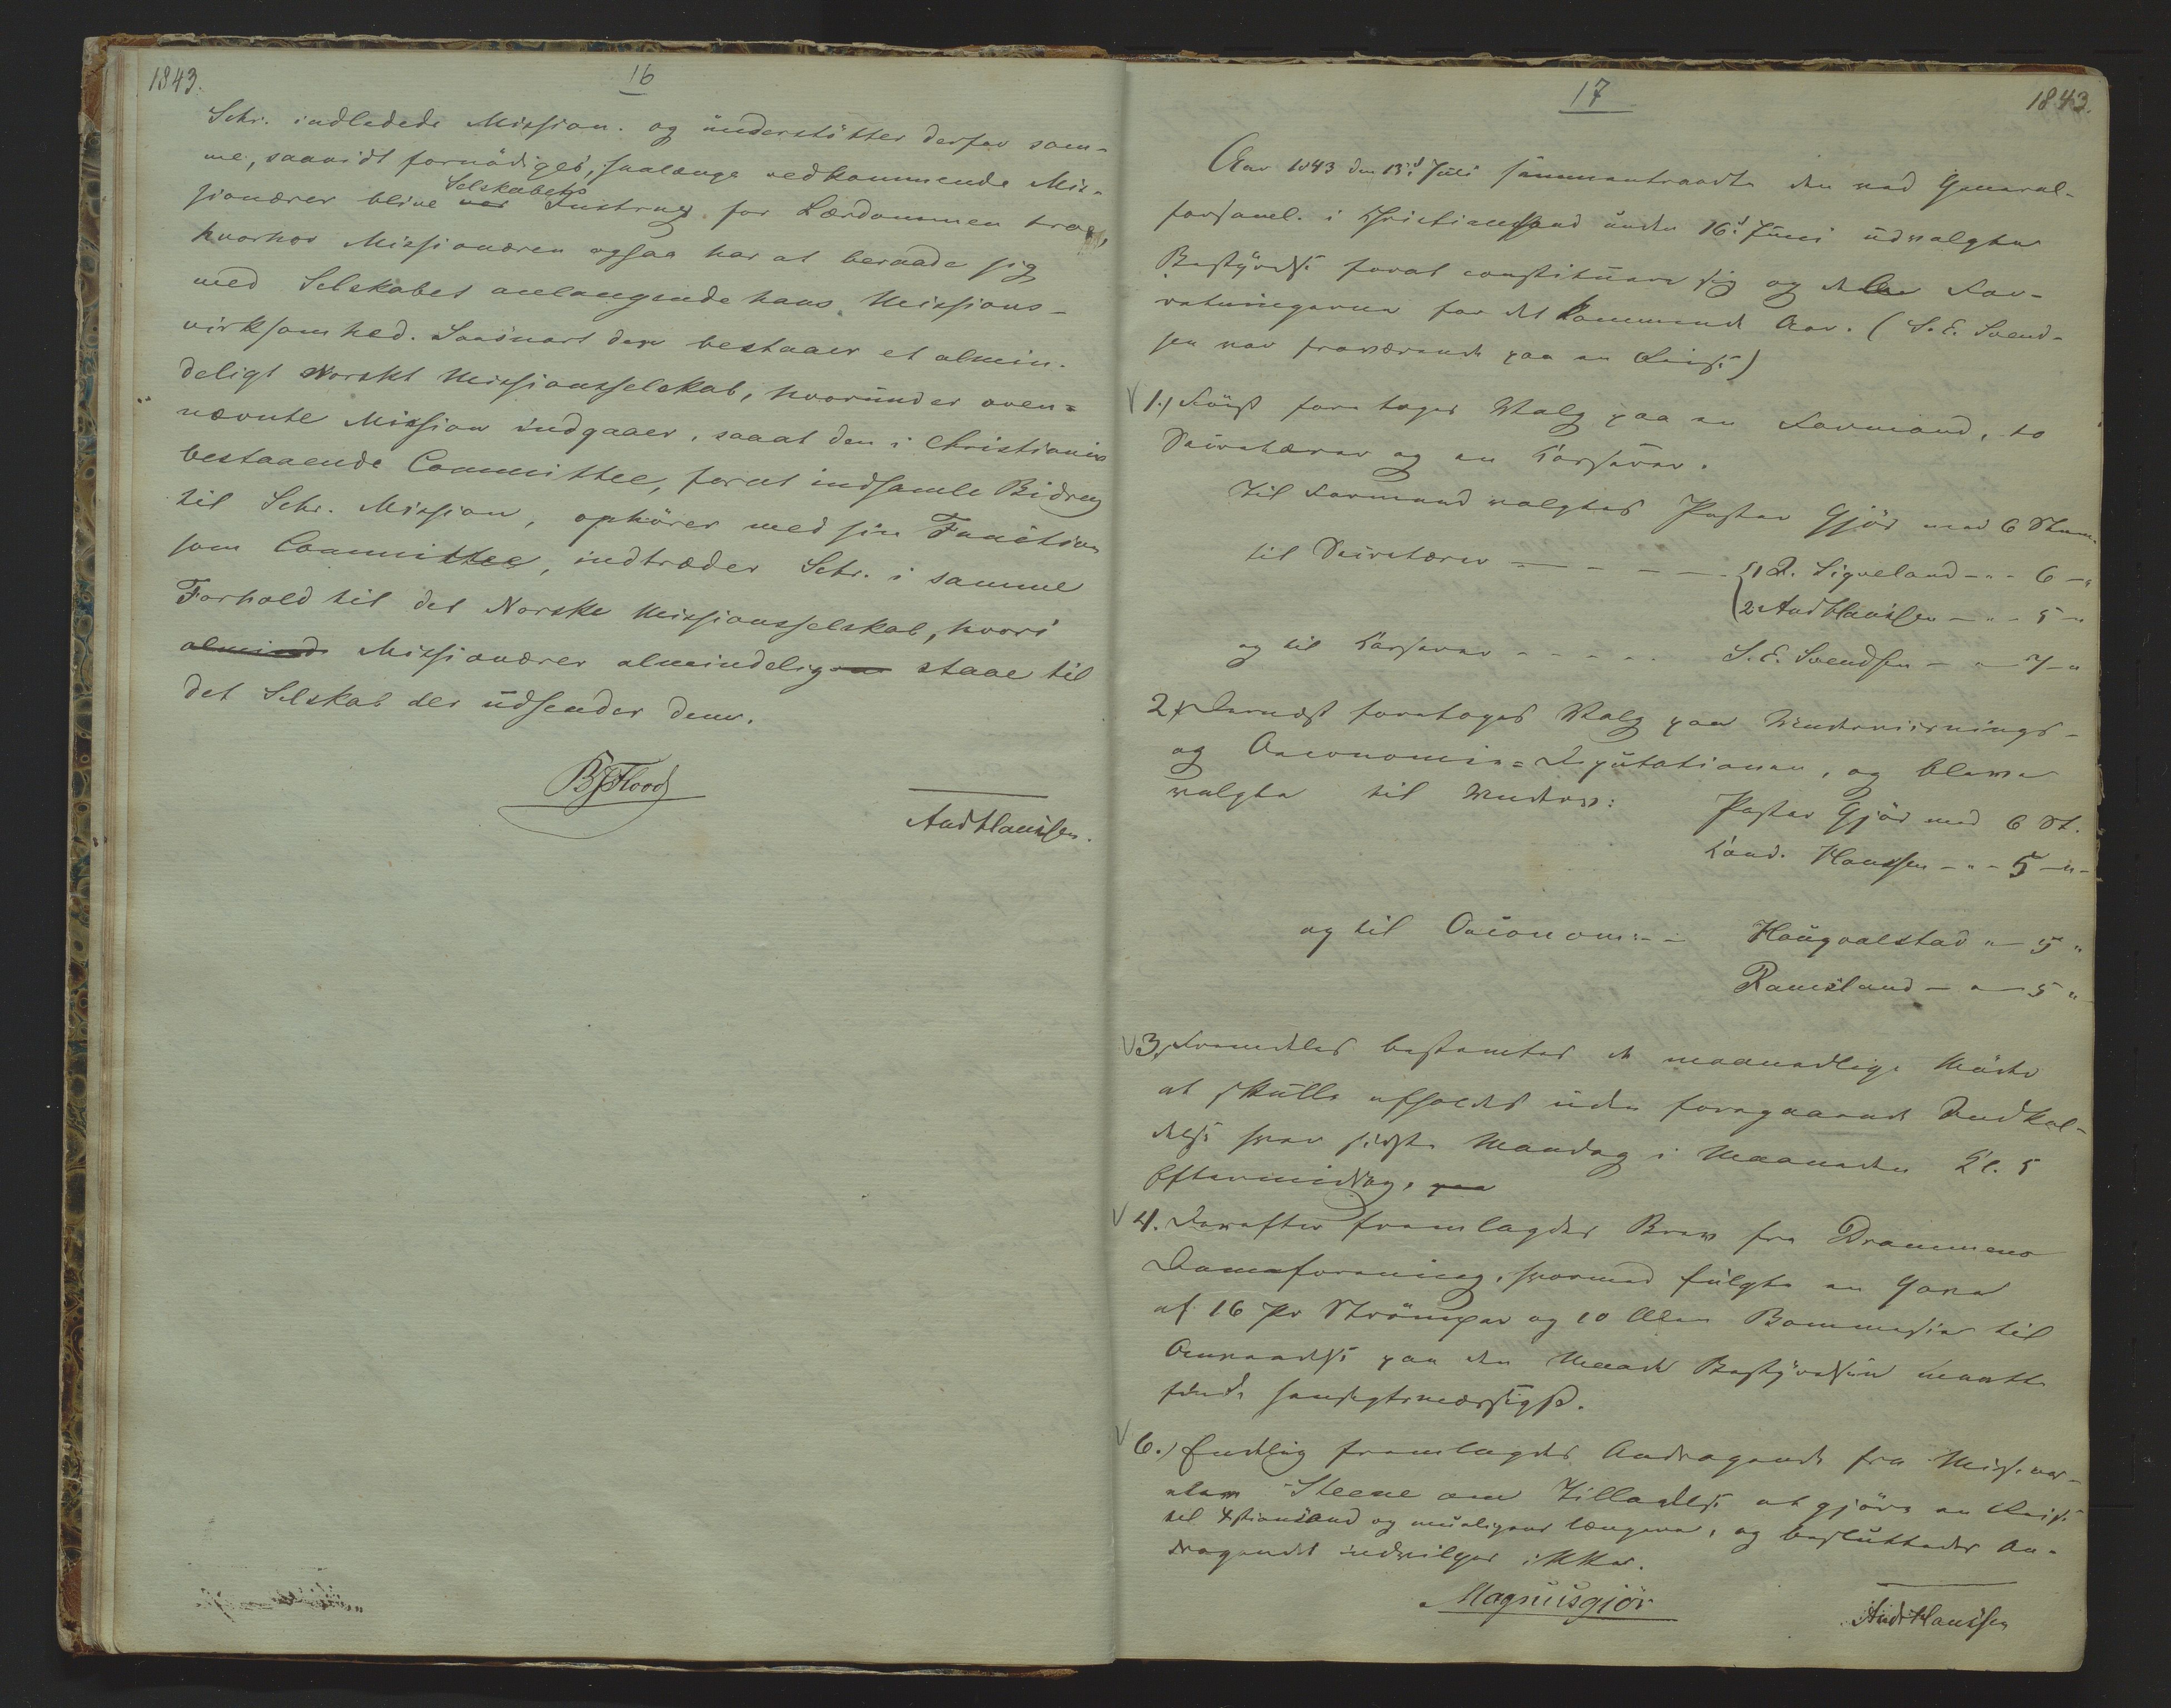 1843.
16
Schr. indledede Mission. og understøtter derfor sam-
me, saavidt fornødiges, saalænge vedkommende Mis-
sionærer blive ved Selskabets Instrux for Lærdommen troe,
hvorhos Missionæren ogsaa har at beraade sig
med Selskabet anlangende hans Missions-
virksomhed. Saasnart der bestaaer et almin-
deligt Norskt Missionsselskab, hvorunder oven-
nævnte Mission indgaaer, saaat den i Christiania
bestaaende Committee, forat indsamle Bidrag
til Schr. Mission, ophører med sin Function
som Committee, indtræder Schr. i samme
Forhold til det Norske Missionsselskab, hvori
almind Missionærer almindeligen staae til
det Selskab der udsender dem.
BJFlood
AndHaussen.
17
1843.
Aar 1843 den 13d Juli sammentraadte den ved General-
forsaml. i Christianssand under 16d Juni udvalgte
Bestyrelse forat constituere sig og dele For-
retningerne for det kommende Aar. (S. E. Svend-
sen var fraværende paa en Reise)
1.) Først foretoges Valg paa en Formand, to
Secretærer og en Casserer.
Til Formand valgtes Pastor Gjör med 6 Stem.
til Secretærer — — — {1 L. Sigveland - " - 6 - "
2 AndHaussen - " - 5 - "
og til Casserer - - - - - S. E. Svendsen - " - 7 - "
2.) Dernæst foretoges Valg paa Underviisnings-
og Oeconomie-Deputationen, og bleve
valgte til Underv: Pastor Gjör med 6 St.
Cand. Haussen - " - 5 - " -
og til Oeconom: - - Haugvalstad " - 5 "
Ramsland - " - 5 "
3. Fremdeles bestemtes de maanedlige Møder
at skulle afholdes uden foregaaende Indkal-
delse hver sidste Mandag i Maaneden Kl. 5
Eftermiddag. paa
4. Derefter fremlagdes Brev fra Drammens
Dameforening, hvormed fulgte en Gave
af 16 Pr Strömper og 10 Alen Bommesie til
Anvendelse paa den Maade Bestyrelsen maatte
finde hensigtsmæssigst.
6.) Endelig fremlagdes Andragende fra Miss.
eleven Steene om Tilladelse at gjöre en Reise
til Xstiansand og mueligens længere, og besluttedes An-
dragendet indvilges ikke.
Magnusgjör
AndHaussen